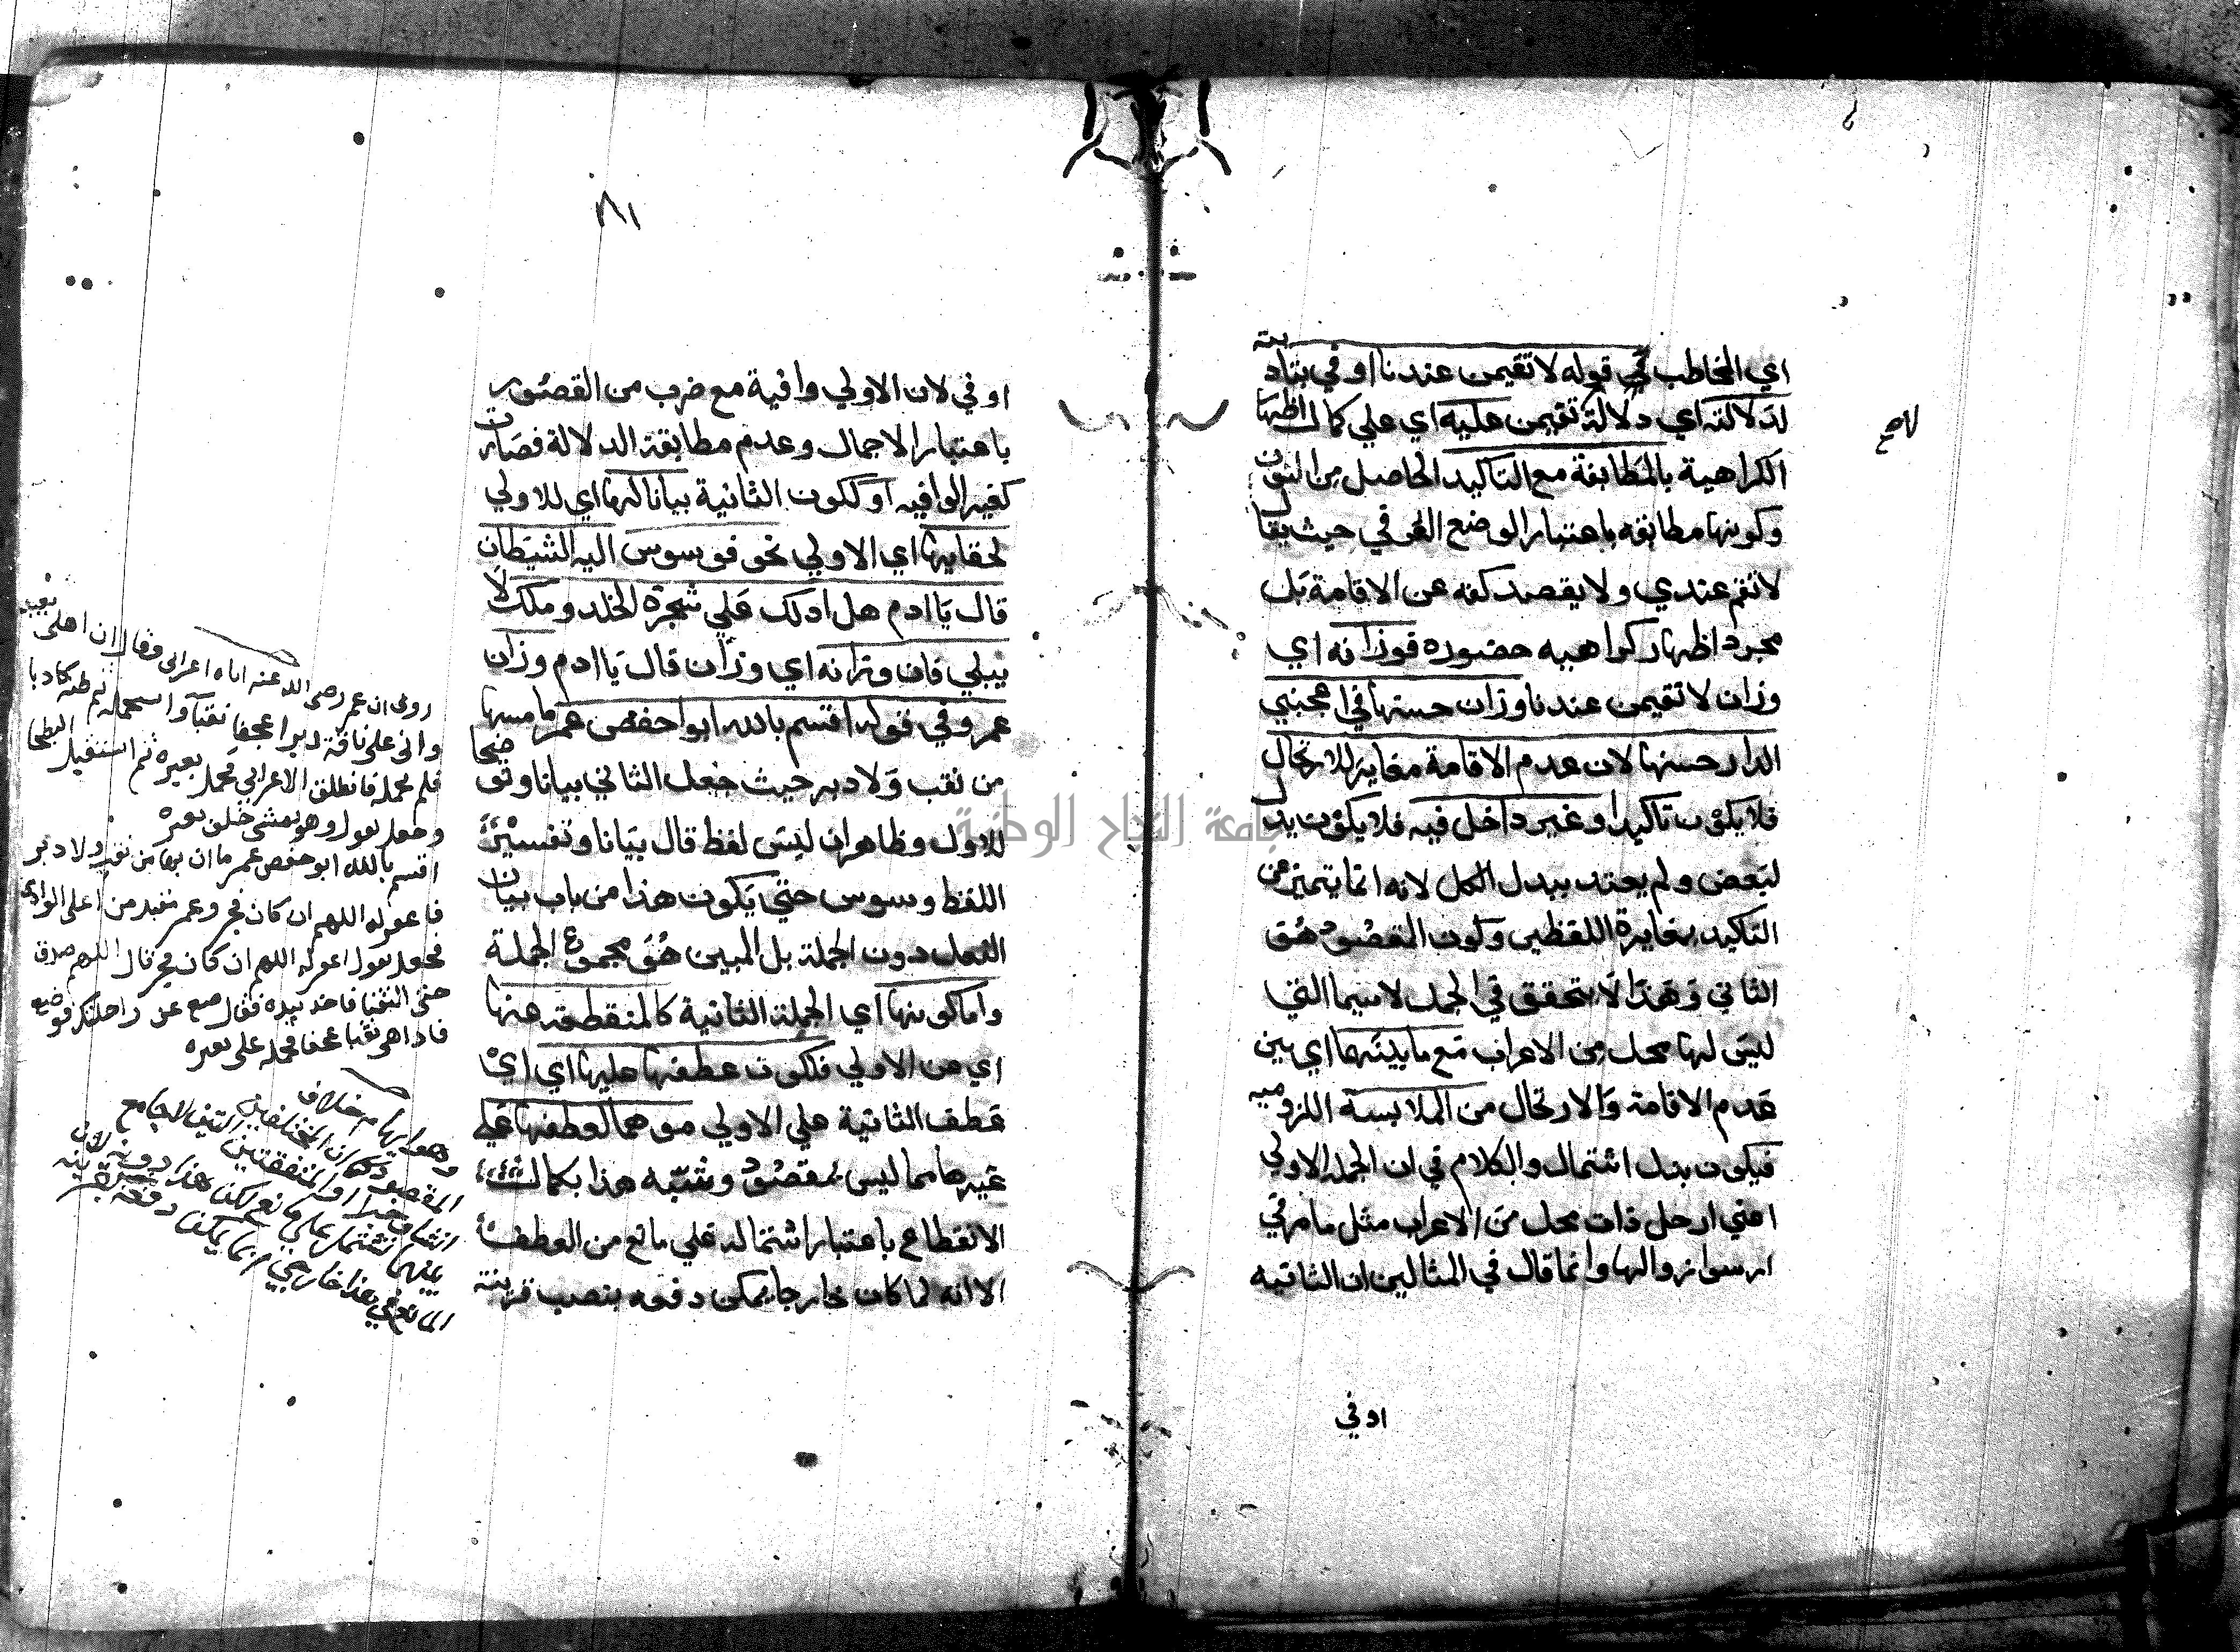 اي المخاطب في قوله لا تقيمن عندنا اوفي بتاديته
لدلالته اي دلالة تقيمن عليه اي علي كمال اظهار
الكراهية بالمطابقة مع التاكيد الحاصل من النون
وكونها مطابقه باعتبار الوضع العرفي حيث يقال
لا تقم عندي ولا يقصد كفه عن الاقامة بل
مجرد اظهار كراهيه حضوره فوزانه اي
وزان لا تقيمن عندنا وزان حسنها في اعجبني
الدار حسنها لان عدم الاقامة مغاير للارتحال
فلا يكون تاكيدا وغير داخل فيه فلا يكون بدل
لبعض ولم يعتد ببدل الكل لانه انما يتميز عن
التاكيد بمغايرة اللفظين وكون المقصود هو
الثاني وهذا لا يتحقق في الجمل لاسيما التي
ليس لها محل من الاعراب مع ما بينهما اي بين
عدم الاقامة والارتحال من الملابسة اللزوميه
فيكون بدل اشتمال والكلام في ان الجمله الاولي
اعني ارحل ذات محل من الاعراب مثل ما مر في
ارسوا نزاولها وانما قال في المثالين ان الثانيه
اوفي
٨١
اوفي لان الاولي وافية مع ضرب من القصور
باعتبار الاجمال وعدم مطابقة الدلالة فصارت
كغير الوافيه او لكون الثانية بيانا لها اي للاولي
لخفايها اي الاولي نحو فوسوس اليه الشيطان
قال يا ادم هل ادلك علي شجرة الخلد وملك لا
يبلي فان وزانه اي وزان قال يا ادم وزان
عمر وفي قوله اقسم بالله ابو حفص عمر ما مسها
من نقب ولا دبر حيث جعل الثاني بيانا وتوضيحا
للاول وظاهر ان ليس لفظ قال بيانا وتفسيرا
اللفظ وسوس حتي يكون هذا من باب بيان
الفعل دون الجملة بل المبين هو مجموع الجملة
واما كونها اي الجملة الثانية كالمنقطعة عنها
اي عن الاولي فلكون عطفها عليها اي اي
عطف الثانية علي الاولي موهما لعطفها علي
غيرها مما ليس بمقصود وشبه هذا بكمال
الانقطاع باعتبار اشتماله علي مانع من العطف
الا انه لما كان خارجا يمكن دفعه بنصب قرينة
روى ان عمر رضي الله عنه اتاه اعرابي وقال ان اهلي بعيد
واني على ناقة دبرا عجفا نقبا واستحمله ثم ظنه كاذبا
فلم يحمله فانطلق الاعرابي فحمل بعيره ثم استقبل البطحا
وجعل يقول وهو يمشي خلف بعيره
اقسم بالله ابو حفص عمر ما ان بها من نقب ولا دبر
فاغفر له اللهم ان كان فجر وعمر مقبل من اعلى الوادي
فجعل يقول اغفر له اللهم ان كان فجر قال اللهم صدق
حتى التقيا فاخذ بيده فقال ضع عن راحلتك فوضع
فاذا هي نقبا عجفا فحمله على بعيره